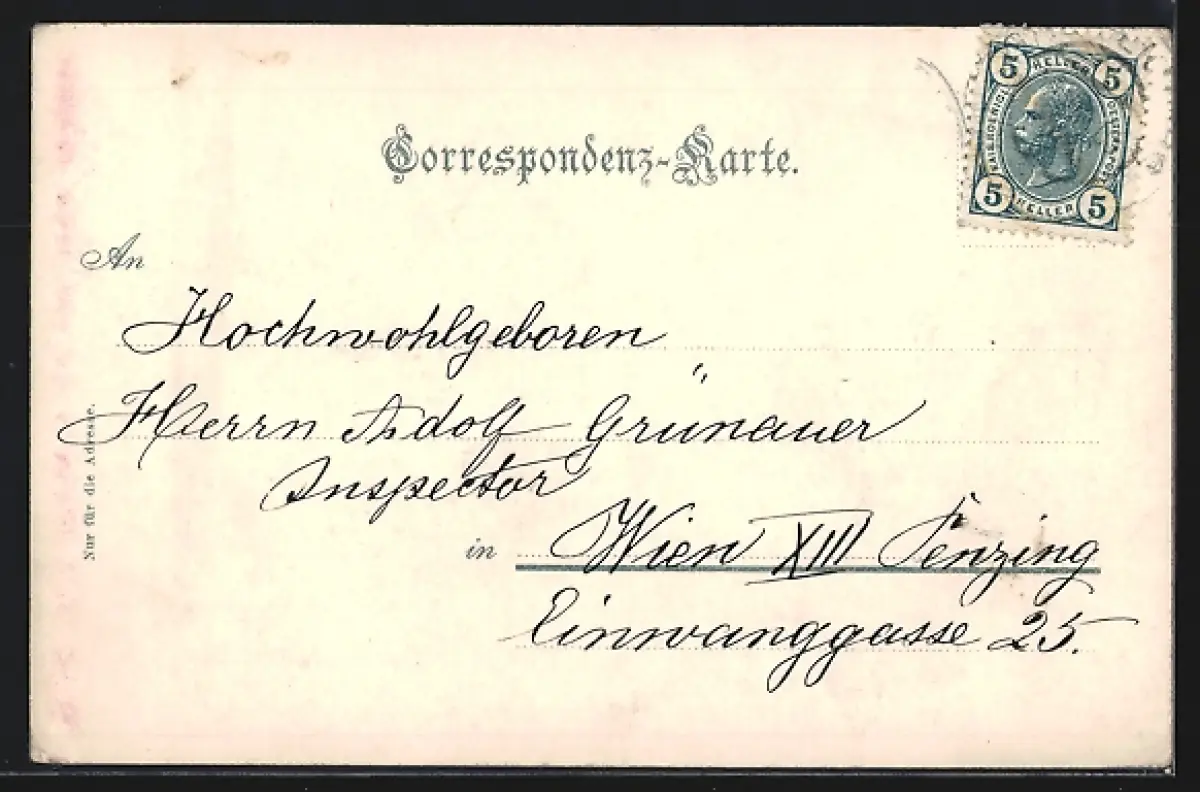 Correspondenz-Karte.
5 HELLER 5
5 HELLER 5
An
Hochwohlgeboren
Herrn Adolf Grünauer
Inspector
in Wien XIII Penzing
Einwanggasse 25.
Nur für die Adresse.